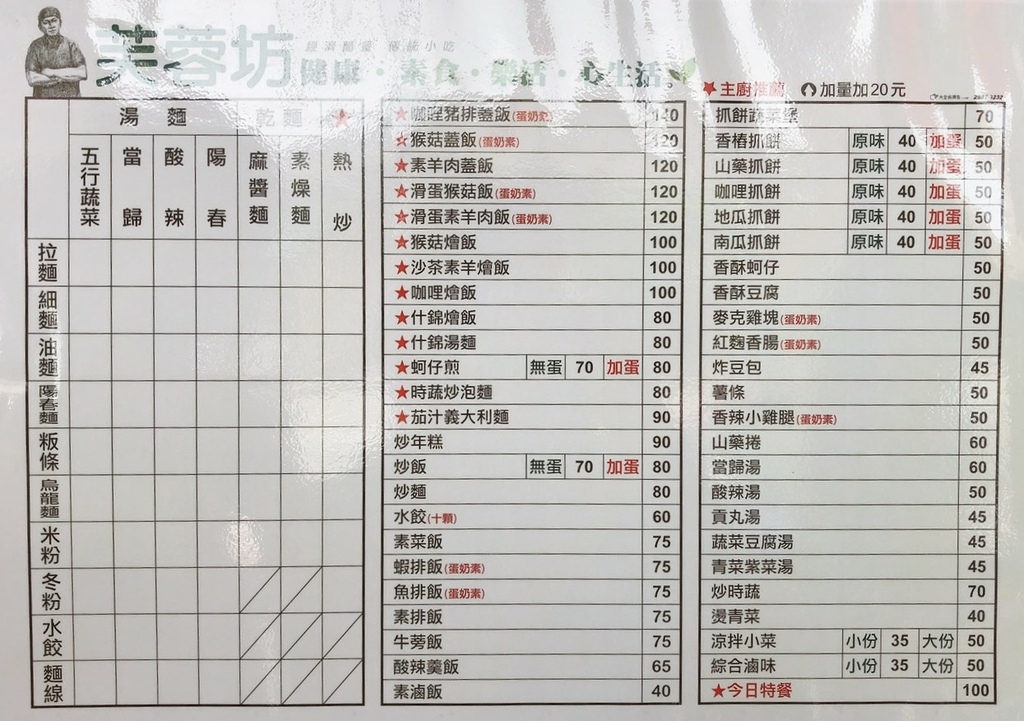 芙蓉坊 經濟簡餐 傳統小吃
健康·素食·樂活·心生活
★主廚推薦 加量加20元
湯麵 乾麵 ★
五行蔬菜 當歸 酸辣 陽春 麻醬麵 素燥麵 熱炒
拉麵
細麵
油麵
陽春麵
粄條
烏龍麵
米粉
冬粉
水餃
麵線
★咖哩豬排蓋飯(蛋奶素) 140
★猴菇蓋飯(蛋奶素) 120
★素羊肉蓋飯 120
★滑蛋猴菇飯(蛋奶素) 120
★滑蛋素羊肉飯(蛋奶素) 120
★猴菇燴飯 100
★沙茶素羊燴飯 100
★咖哩燴飯 100
★什錦燴飯 80
★什錦湯麵 80
★蚵仔煎 無蛋 70 加蛋 80
★時蔬炒泡麵 80
★茄汁義大利麵 90
炒年糕 90
炒飯 無蛋 70 加蛋 80
炒麵 80
水餃(十顆) 60
素菜飯 75
蝦排飯(蛋奶素) 75
魚排飯(蛋奶素) 75
素排飯 75
牛蒡飯 75
酸辣羹飯 65
素滷飯 40
抓餅蔬菜堡 70
香椿抓餅 原味 40 加蛋 50
山藥抓餅 原味 40 加蛋 50
咖哩抓餅 原味 40 加蛋 50
地瓜抓餅 原味 40 加蛋 50
南瓜抓餅 原味 40 加蛋 50
香酥蚵仔 50
香酥豆腐 50
麥克雞塊(蛋奶素) 50
紅麴香腸(蛋奶素) 50
炸豆包 45
薯條 50
香辣小雞腿(蛋奶素) 50
山藥捲 60
當歸湯 60
酸辣湯 50
貢丸湯 45
蔬菜豆腐湯 45
青菜紫菜湯 45
炒時蔬 70
燙青菜 40
涼拌小菜 小份 35 大份 50
綜合滷味 小份 35 大份 50
★今日特餐 100